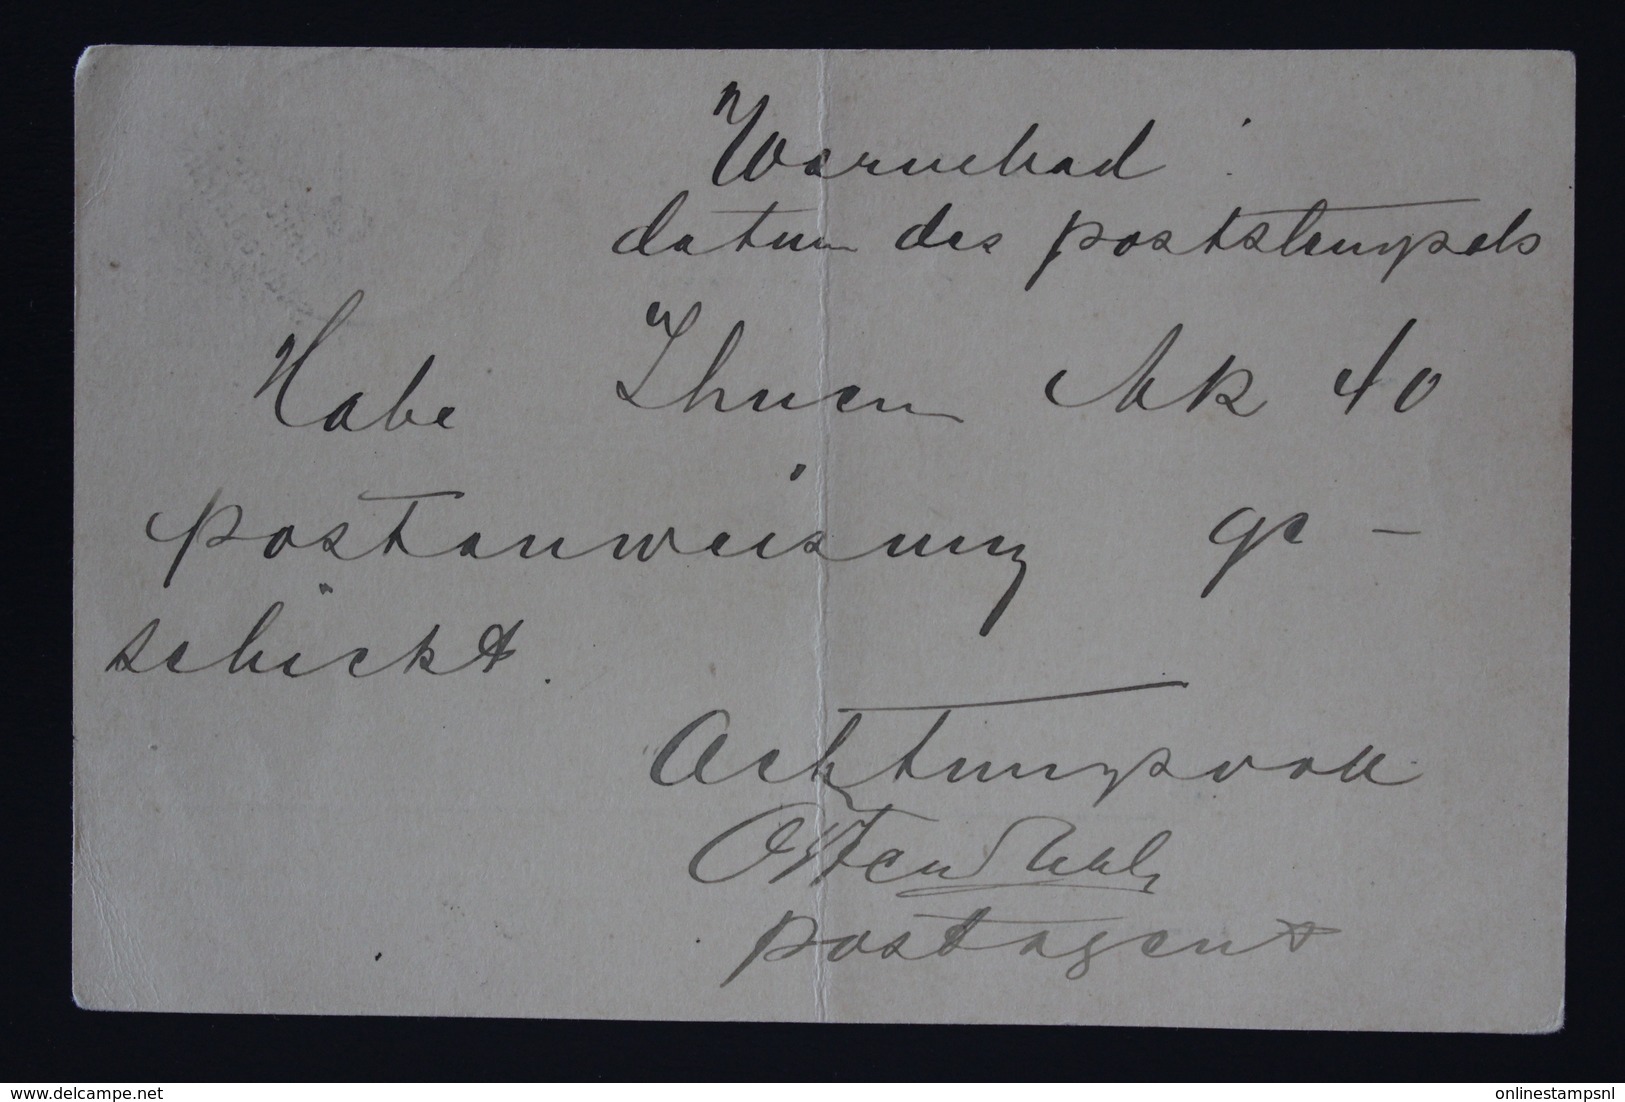 Warmbad
datum des poststempels
Habe Ihnen Mk 40
postanweisung ge-
schickt.
Achtungsvoll
postagent
DELCAMPE.NET
onlinestampsnl